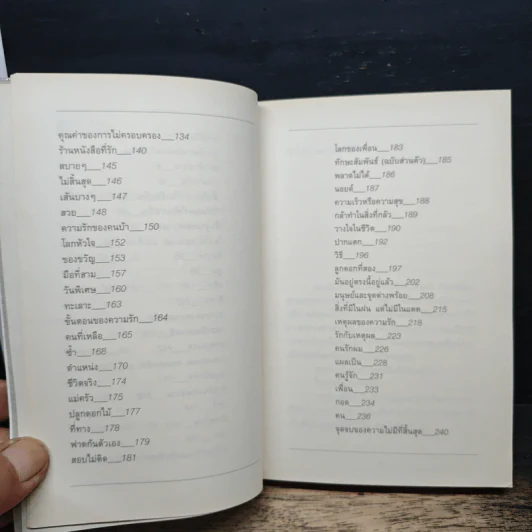 คุณค่าของการไม่ครอบครอง___134
ร้านหนังสือที่รัก___140
สบายๆ___145
ไม่สิ้นสุด___146
เส้นบางๆ___147
สวย___148
ความรักของคนบ้า___150
โลกหัวใจ___152
ของขวัญ___153
มือที่สาม___157
วันพิเศษ___160
ทะเลาะ___163
ขั้นตอนของความรัก___164
คนที่เหลือ___165
ซ้ำ___168
ตำแหน่ง___170
ชีวิตจริง___174
แม่ครัว___175
ปลูกดอกไม้___177
ที่ทาง___178
ฟาดกันตัวเอง___179
ตอบไม่ผิด___181
โลกของเพื่อน___183
ทักษะสัมพันธ์ (ฉบับส่วนตัว)___185
พลาดไม่ได้___186
นอยด์___187
ความเร็วหรือความสุข___188
กล้าทำในสิ่งที่กลัว___189
วางใจในชีวิต___190
ปากแตก___192
วิธี___196
ลูกดอกที่สอง___197
มันอยู่ตรงนี้อยู่แล้ว___202
มนุษย์และจุดด่างพร้อย___208
สิ่งที่มีในฝน แต่ไม่มีในแดด___215
เหตุผลของความรัก___219
รักกับเหตุผล___223
คนรักผม___226
แผลเป็น___228
คนรู้จัก___231
เพื่อน___233
กอด___234
คน___236
จุดจบของความไม่มีที่สิ้นสุด___240